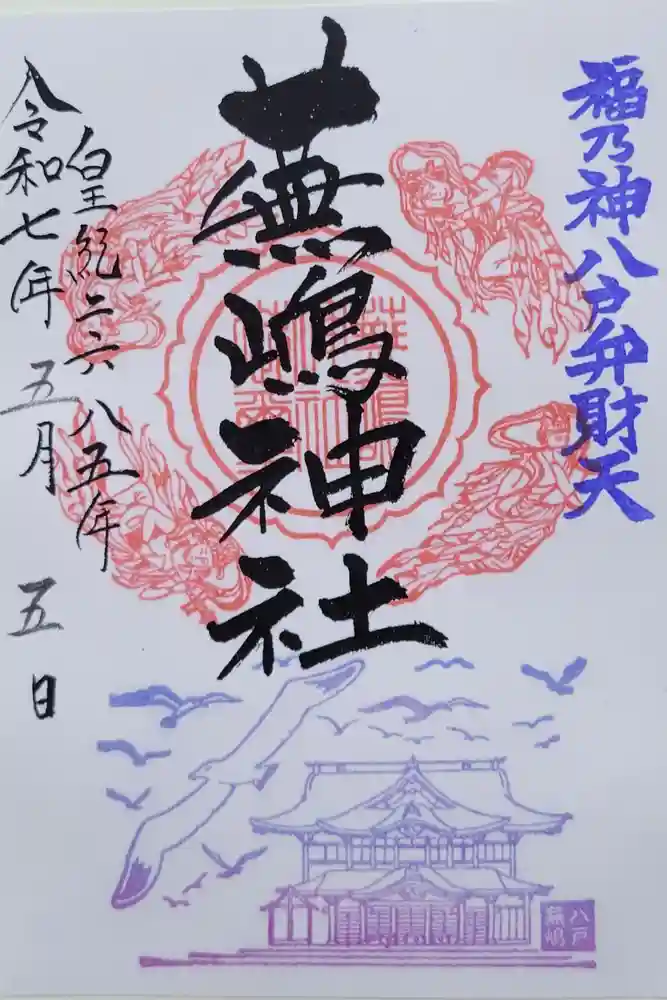 福乃神八戸弁財天
蕪嶋神社
皇紀二六八五年
令和七年五月五日
八戸
蕪嶋